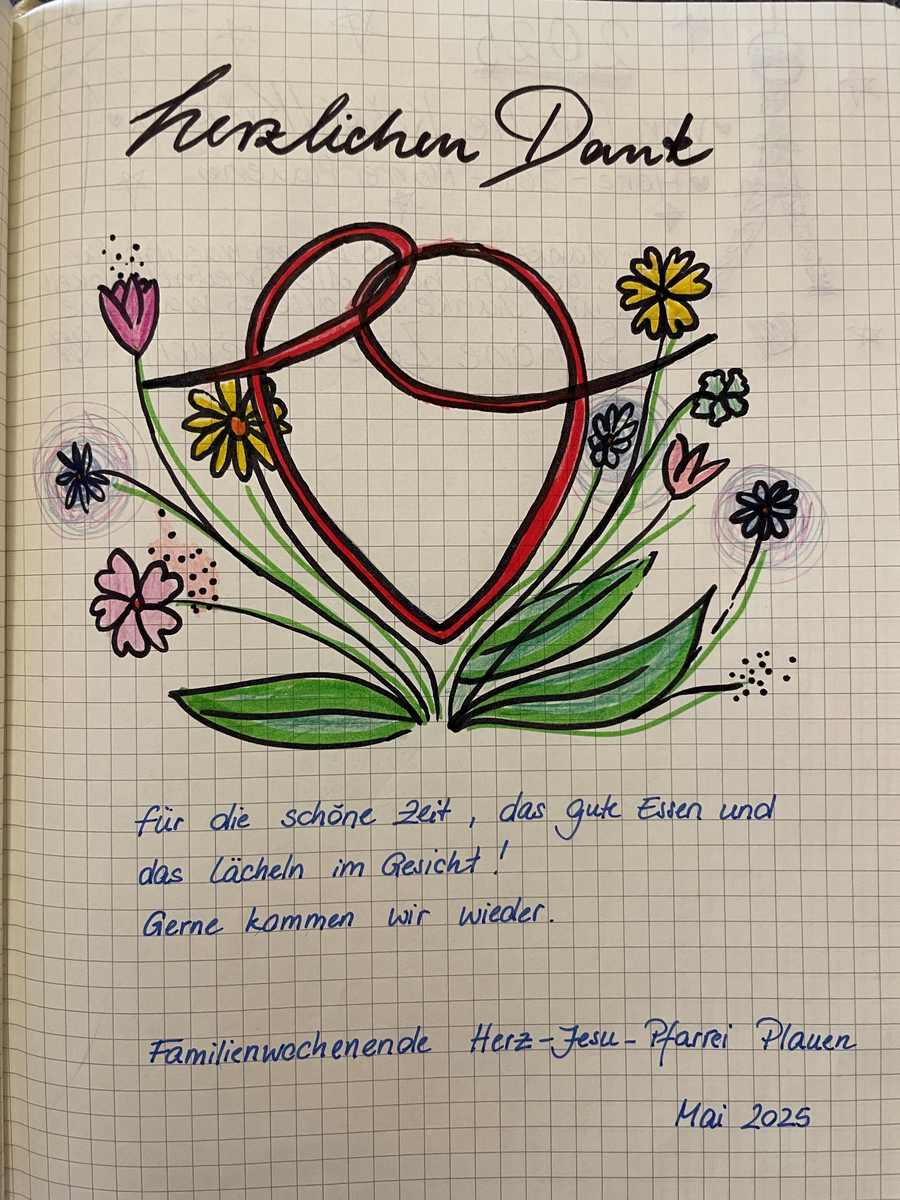 herzlichen Dank
für die schöne Zeit, das gute Essen und
das Lächeln im Gesicht!
Gerne kommen wir wieder.
Familienwochenende Herz-Jesu-Pfarrei Plauen
Mai 2025